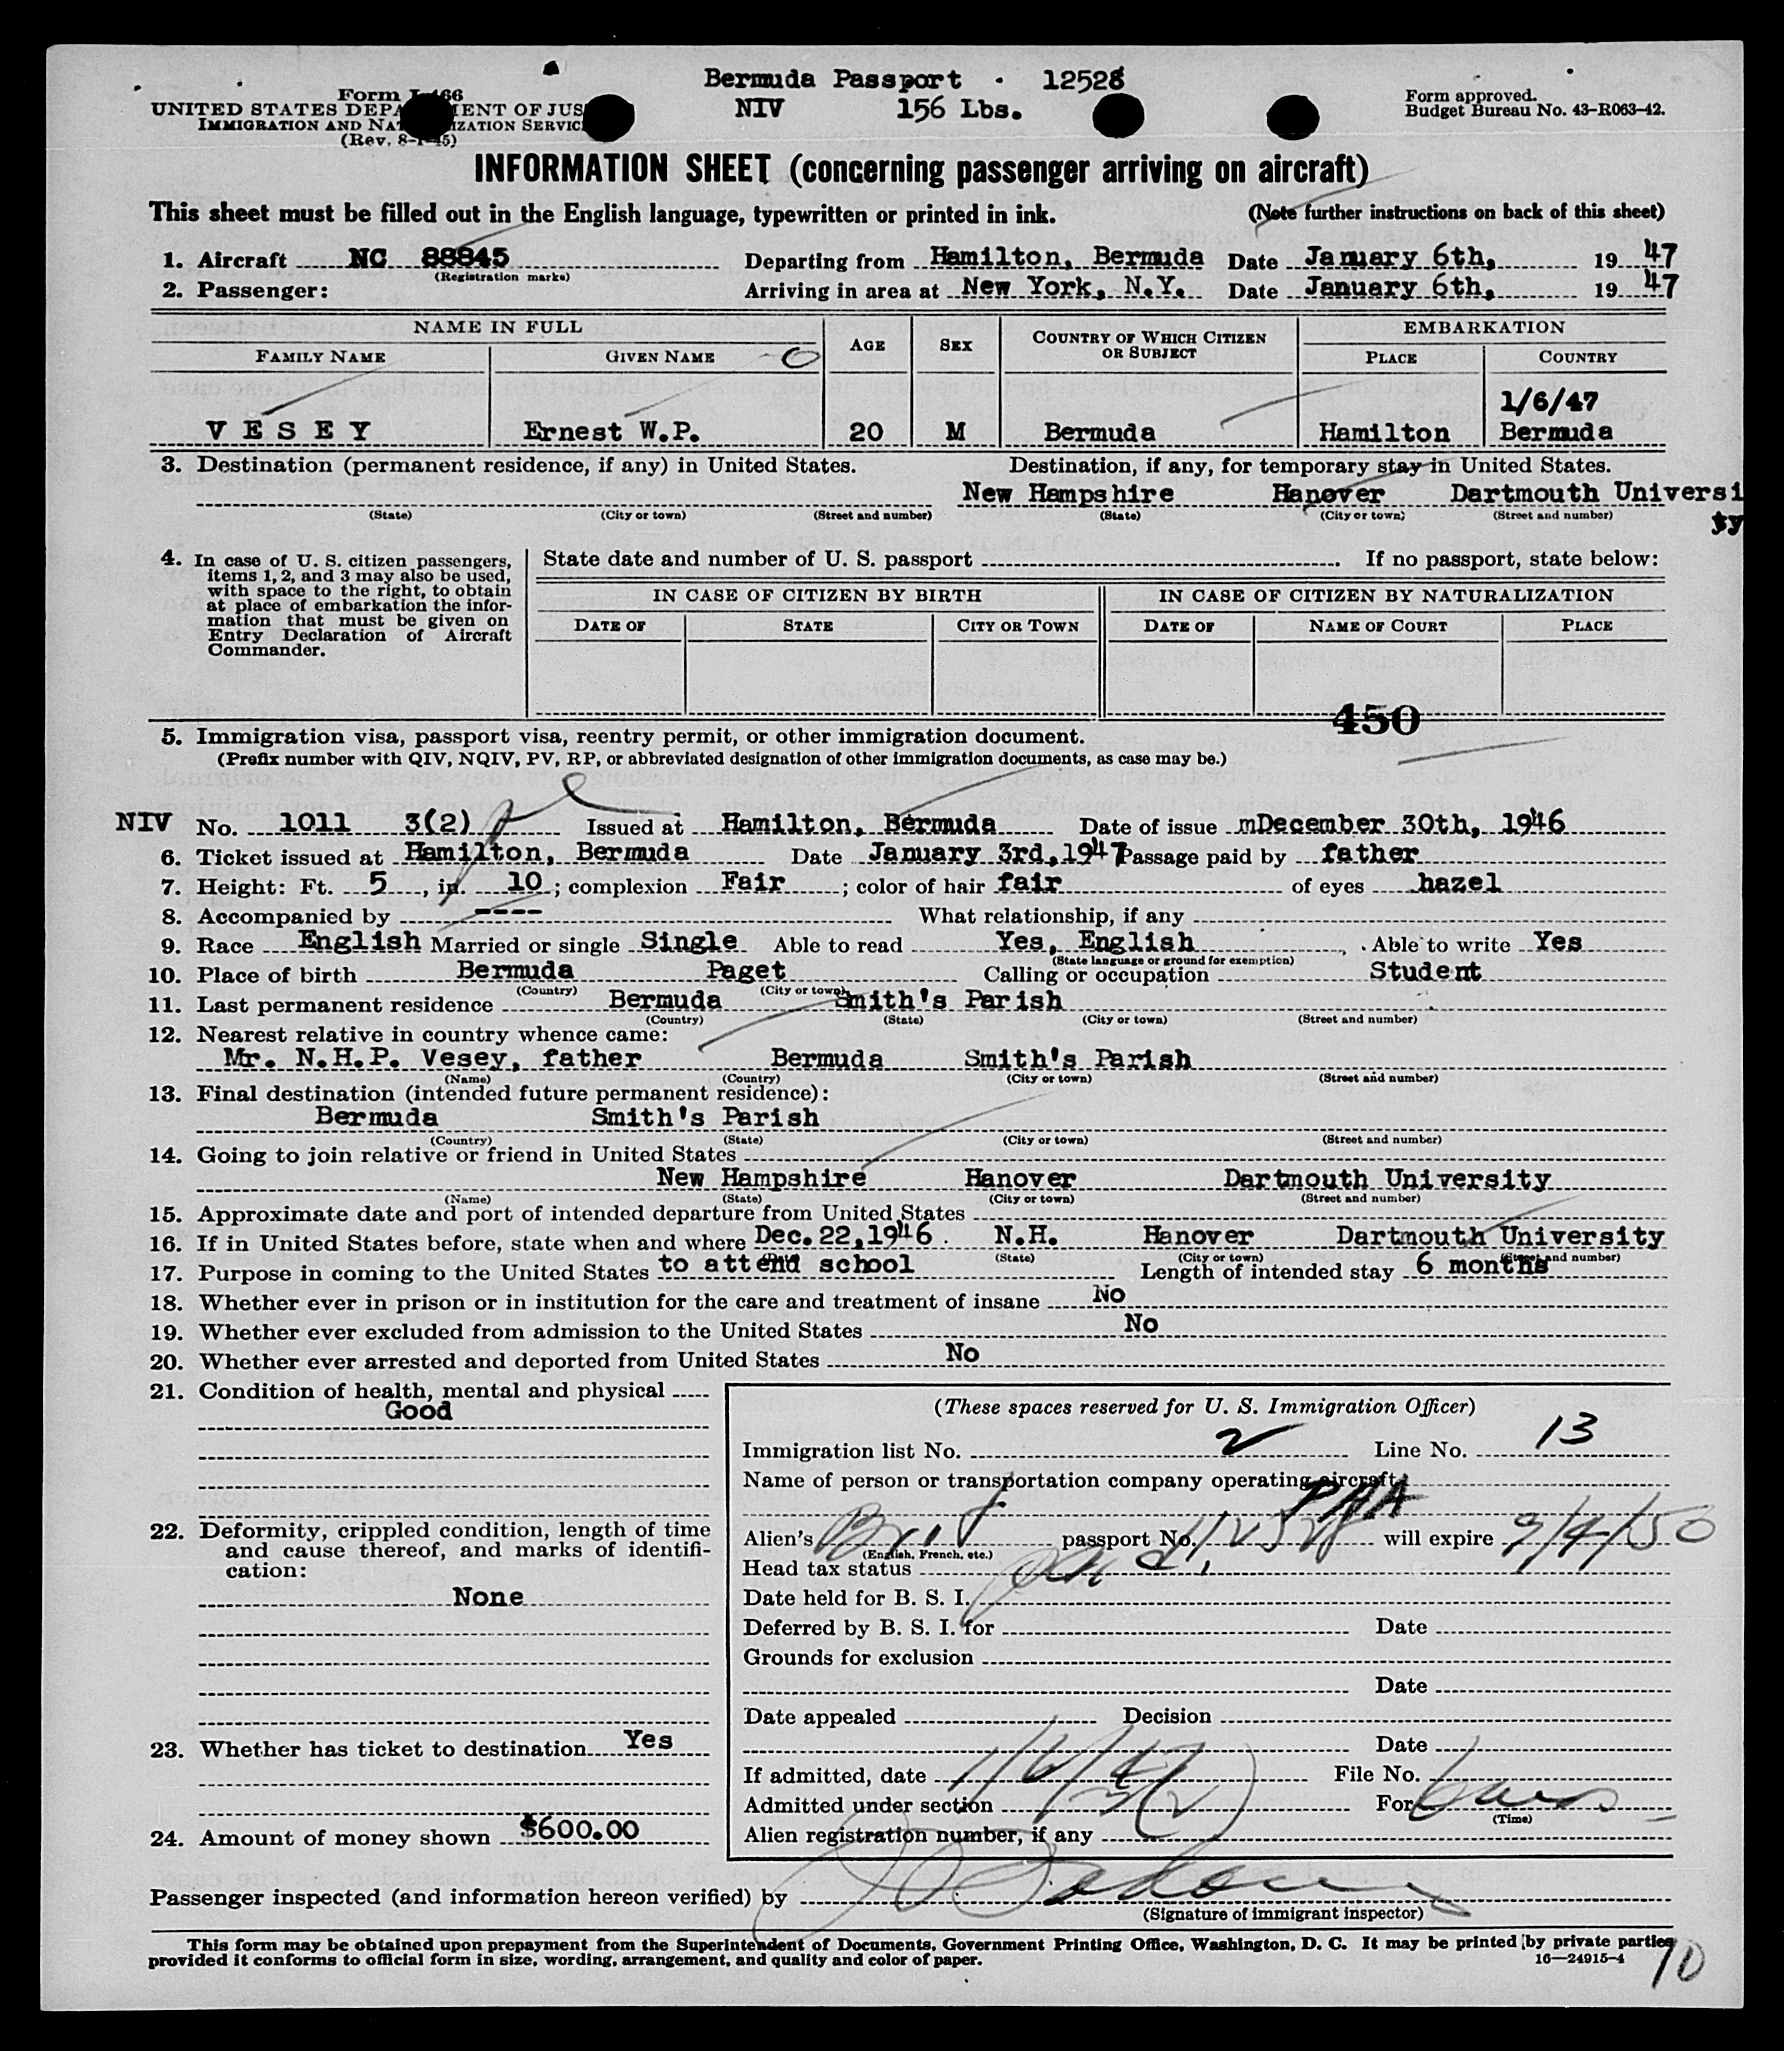 Bermuda Passport - 12528
Form I-466
UNITED STATES DEPARTMENT OF JUS
IMMIGRATION AND NATURALIZATION SERVIC
(Rev. 8-1-45)
NIV 156 Lbs.
Form approved.
Budget Bureau No. 43-R063-42.
INFORMATION SHEET (concerning passenger arriving on aircraft)
This sheet must be filled out in the English language, typewritten or printed in ink. (Note further instructions on back of this sheet)
1. Aircraft NC 88845 Departing from Hamilton, Bermuda Date January 6th, 19 47
(Registration marks)
2. Passenger: Arriving in area at New York, N.Y. Date January 6th, 19 47
NAME IN FULL AGE SEX COUNTRY OF WHICH CITIZEN OR SUBJECT EMBARKATION
FAMILY NAME GIVEN NAME PLACE COUNTRY
1/6/47
V E S E Y Ernest W.P. 20 M Bermuda Hamilton Bermuda
3. Destination (permanent residence, if any) in United States. Destination, if any, for temporary stay in United States.
New Hampshire Hanover Dartmouth Universi
ty
(State) (City or town) (Street and number) (State) (City or town) (Street and number)
4. In case of U. S. citizen passengers,
items 1, 2, and 3 may also be used,
with space to the right, to obtain
at place of embarkation the infor-
mation that must be given on
Entry Declaration of Aircraft
Commander.
State date and number of U. S. passport . If no passport, state below:
IN CASE OF CITIZEN BY BIRTH IN CASE OF CITIZEN BY NATURALIZATION
DATE OF STATE CITY OR TOWN DATE OF NAME OF COURT PLACE
450
5. Immigration visa, passport visa, reentry permit, or other immigration document.
(Prefix number with QIV, NQIV, PV, RP, or abbreviated designation of other immigration documents, as case may be.)
NIV No. 1011 3(2) Issued at Hamilton, Bermuda Date of issue mDecember 30th, 1946
6. Ticket issued at Hamilton, Bermuda Date January 3rd, 1947 Passage paid by father
7. Height: Ft. 5, in. 10; complexion Fair; color of hair fair of eyes hazel
8. Accompanied by ---- What relationship, if any
9. Race English Married or single Single Able to read Yes, English, Able to write Yes
(State language or ground for exemption)
10. Place of birth Bermuda Paget Calling or occupation Student
(Country) (City or town)
11. Last permanent residence Bermuda Smith's Parish
(Country) (State) (City or town) (Street and number)
12. Nearest relative in country whence came:
Mr. N.H.P. Vesey, father Bermuda Smith's Parish
(Name) (Country) (City or town) (Street and number)
13. Final destination (intended future permanent residence):
Bermuda Smith's Parish
(Country) (State) (City or town) (Street and number)
14. Going to join relative or friend in United States
New Hampshire Hanover Dartmouth University
(Name) (State) (City or town) (Street and number)
15. Approximate date and port of intended departure from United States
16. If in United States before, state when and where Dec. 22, 1946. N.H. Hanover Dartmouth University
(Date) (State) (City or town) (Street and number)
17. Purpose in coming to the United States to attend school Length of intended stay 6 months
18. Whether ever in prison or in institution for the care and treatment of insane No
19. Whether ever excluded from admission to the United States No
20. Whether ever arrested and deported from United States No
21. Condition of health, mental and physical
Good
22. Deformity, crippled condition, length of time
and cause thereof, and marks of identifi-
cation:
None
23. Whether has ticket to destination Yes
24. Amount of money shown $600.00
(These spaces reserved for U. S. Immigration Officer)
Immigration list No. 2 Line No. 13
Name of person or transportation company operating aircraft
PAA
Alien's Brit passport No. 12528 will expire 9/4/50
(English, French, etc.)
Head tax status
Date held for B. S. I.
Deferred by B. S. I. for Date
Grounds for exclusion
Date
Date appealed Decision
Date
If admitted, date 1/6/47 File No.
Admitted under section 3(2) For
(Time)
Alien registration number, if any
Passenger inspected (and information hereon verified) by
(Signature of immigrant inspector)
This form may be obtained upon prepayment from the Superintendent of Documents, Government Printing Office, Washington, D. C. It may be printed by private parties
provided it conforms to official form in size, wording, arrangement, and quality and color of paper. 16—24915-4
10